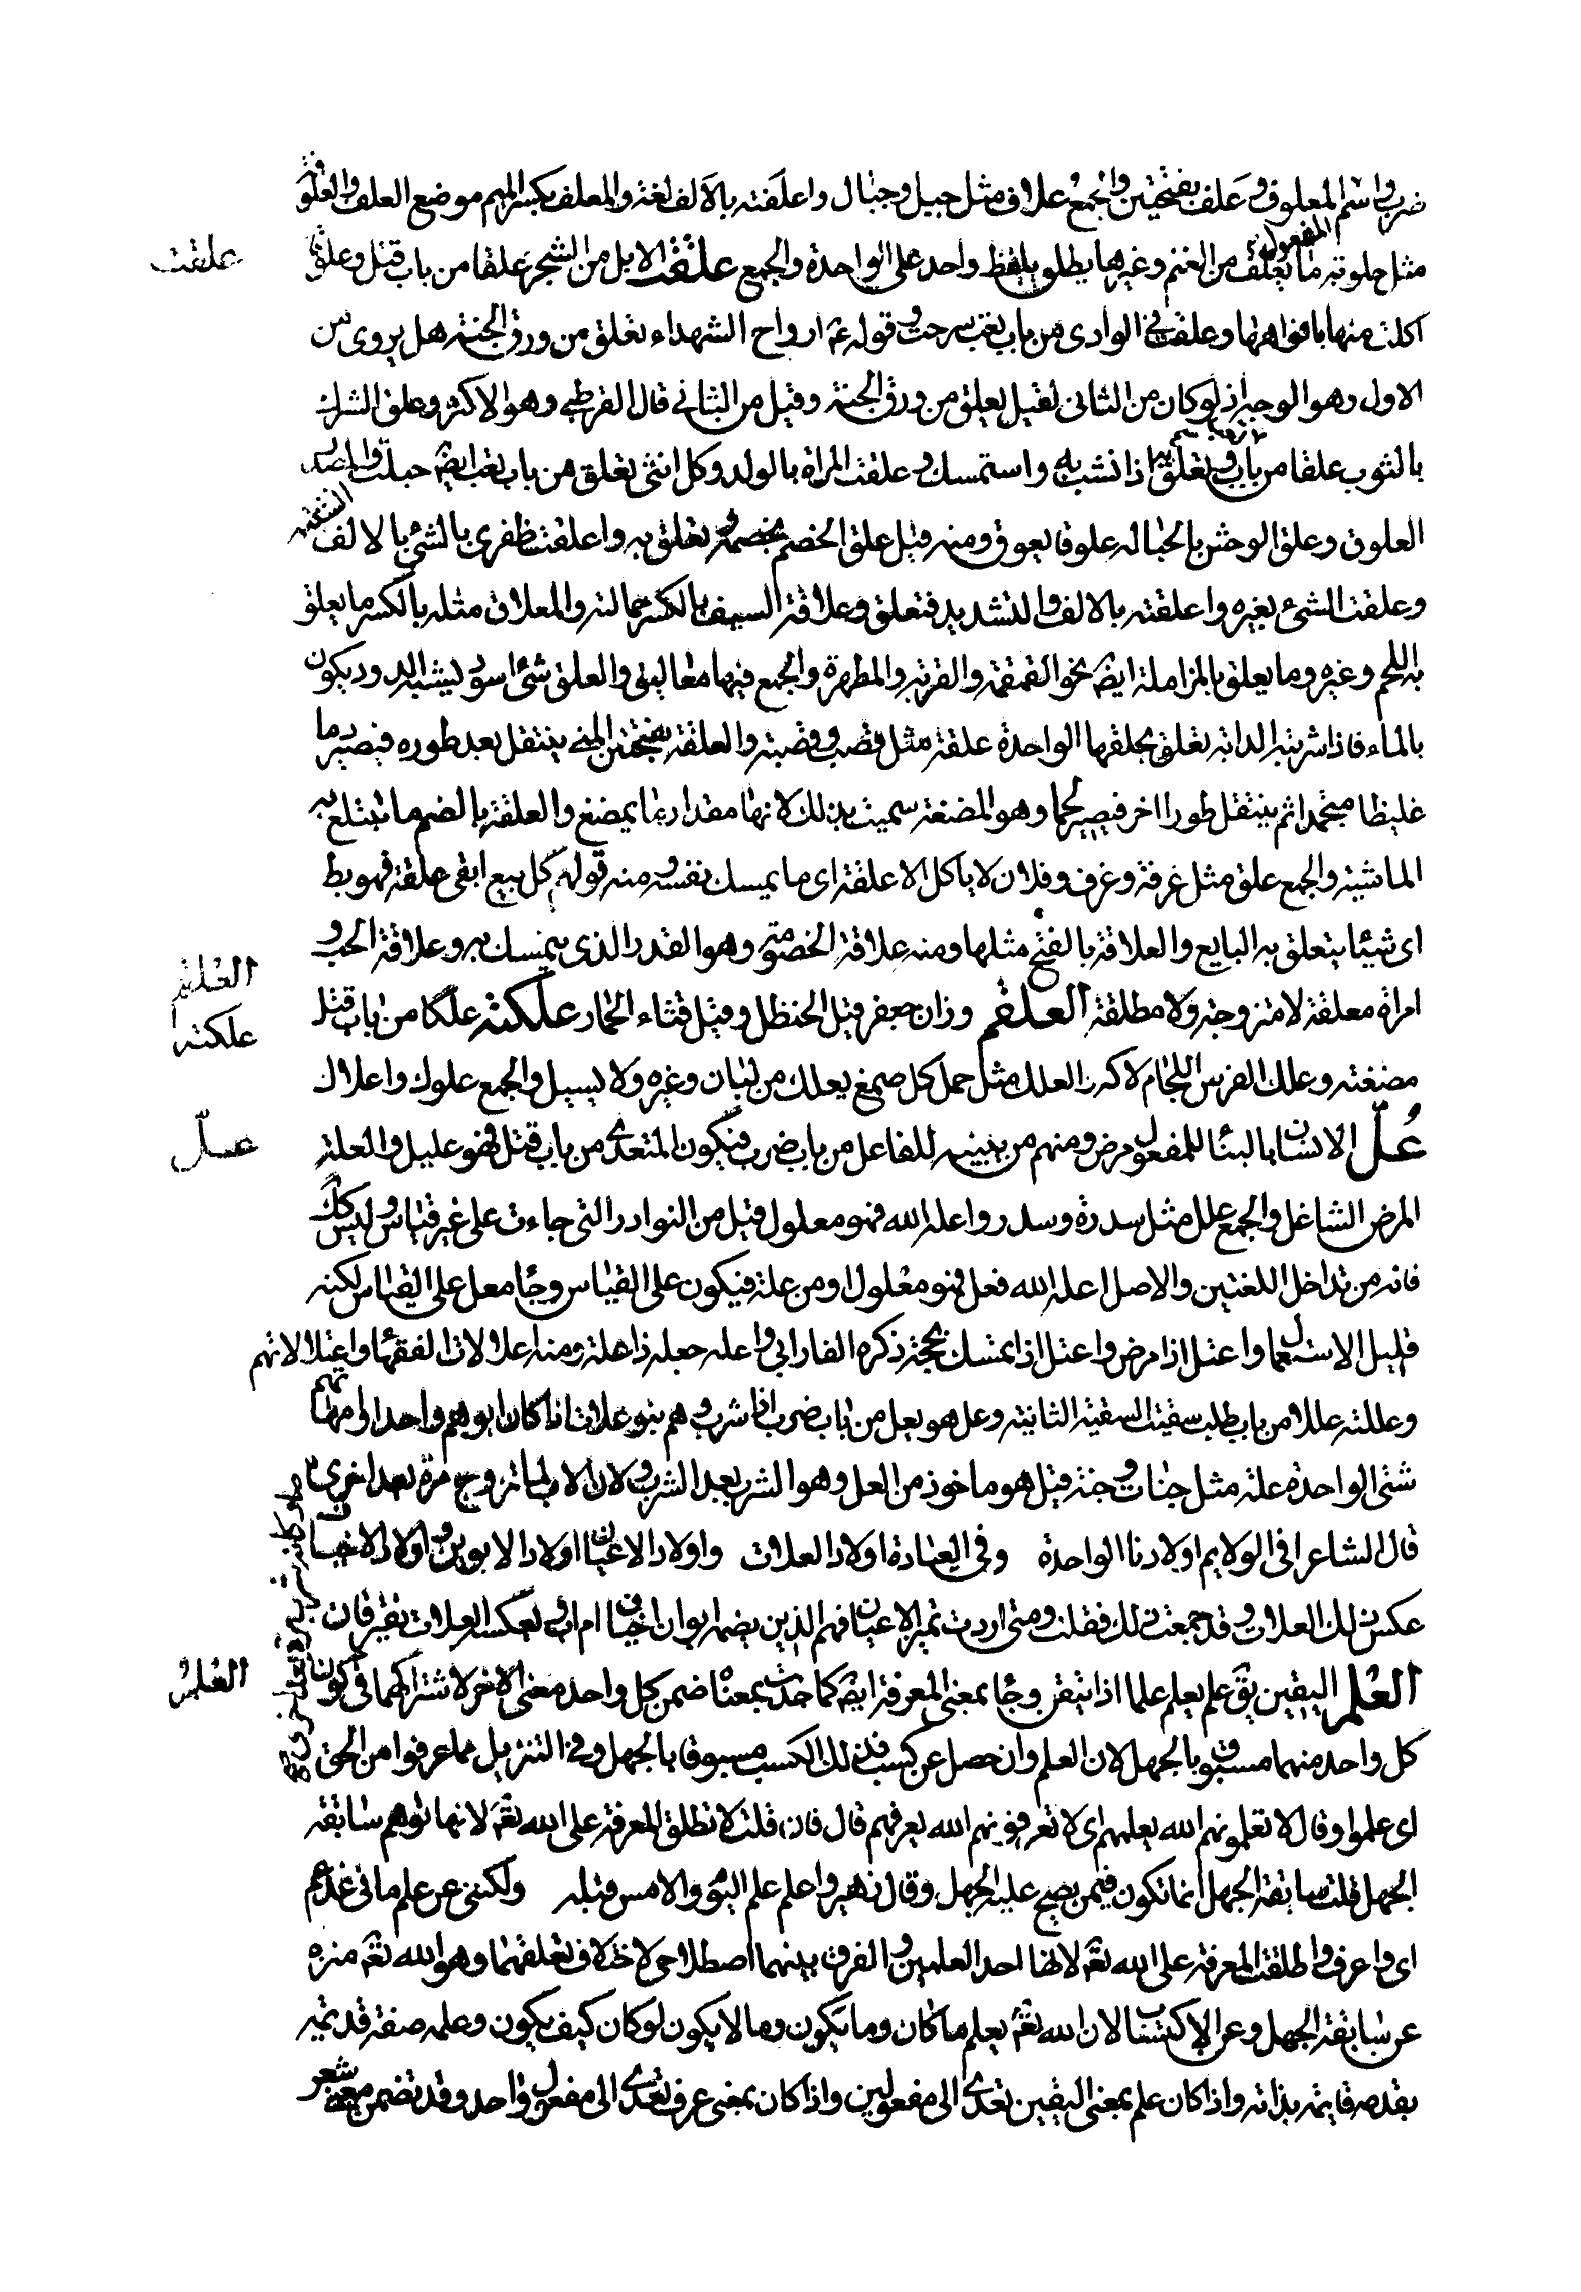 ضرب واسم المفعول المعلوف وعلف بفتحتين والجمع علاف مثل جبل وجبال واعلفته بالالف لغة والمعلف بكسر الميم موضع العلف والعلوفة
مثل حلوبة ما يعلف من الغنم وغيرها يطلق بلفظ واحد على الواحدة والجمع علقت الابل من الشجر علقا من باب قتل وعلوقا
اكلت منها بافواهها وعلقت في الوادى من باب تعب سرحت وقوله عم ارواح الشهداء تعلق من ورق الجنة هل يروى من
الاول وهو الوجه اذ لوكان من الثانى لقيل تعلق من ورق الجنة وقيل من الثاني قال القرطبي وهو الاكثر وعلق الشوك
بالثوب علقا من باب تعب وتعلق به اذا نشب به واستمسك وعلقت المراة بالولد وكل انثى تعلق من باب تعب ايضه حبلت والمصدر
العلوق وعلق الوحش بالحبالة علوقا يعوق ومنه قيل علق الخصم بخصمه وتعلق به واعلقت ظفرى بالشئ بالالف انشبته
وعلقت الشئ بغيره واعلقته بالالف والتشديد فتعلق وعلاقة السيف بالكسر حمالته والمعلاق مثله بالكسر ما يعلق
به اللحم وغيره وما يعلق بالزاملة ايضه نحو القمقمة والقربة والمطهرة والجمع فيها معاليق والعلق شئ اسود يشبه الدود يكون
بالماء فاذا شربته الدابة تعلق بحلقها الواحدة علقة مثل قصب وقصبة والعلقة بفتحتين المنى ينتقل بعد طوره فيصير دما
غليظا متجمدا ثم ينتقل طورا اخر فيصير لحما وهو المضغة سميت بذلك لانها مقدار ما يمضغ والعلقة بالضم ما تتبلغ به
الماشية والجمع علق مثل غرفة وغرف وفلان لا ياكل الا علقة اى ما يمسك نفسه ومنه قولهم كل بيع ابقى علقة فهو بط
اى شيئا يتعلق به البايع والعلاقة بالفتح مثلها ومنه علاقة الخصومة وهو القدر الذى يتمسك به وعلاقة الحب و
امراة معلقة لا متزوجة ولا مطلقة العلقم وزان جعفر قيل الحنظل وقيل قثاء الحمار علكته علكا من باب قتل
مضغته وعلك الفرس اللجام لاكه والعلك مثل حمل كل صمغ يعلك من لبان وغيره ولا يسيل والجمع علوك واعلاك
عل الانسان بالبناء للمفعول مرض ومنهم من يبنيه للفاعل من باب ضرب فيكون المتعدى من باب قتل فهو عليل والعلة
المرض الشاغل والجمع علل مثل سدرة وسدر واعله الله فهو معلول قيل من النوادر التى جاءت على غير قياس وليس كك
فانه من تداخل اللغتين والاصل اعله الله فعل فهو معلول او من علة فيكون على القياس وجاء معل على القياس لكنه
قليل الاستعمال واعتل اذا مرض واعتل اذا تمسك بحجة ذكره الفارابي واعله جعله ذا علة ومنه اعلالات الفقهاء واعتلالاتهم
وعللته عللا من باب طلب سقيته السقية الثانية وعل هو يعل من باب ضرب اذا شرب وهم بنو علات اذا كان ابوهم واحدا وامهاتهم
شتى الواحدة علة مثل جنات وجنة قيل هو ماخوذ من العلل وهو الشرب بعد الشرب ولان الاب لما تزوج مرة بعد اخرى
قال الشاعر افى الولايم اولادنا الواحدة وفى العيادة اولاد العلات واولاد الاعيان اولاد الابوين واولاد الاخياف
عكس ذلك العلات وقد جمعت ذلك فقلت ومتى اردت تميز الاعيان فهم الذين يضمهم ابوان اخياف ام اب بعكسه العلات يفترقان
العلم اليقين يق علم يعلم علما اذا تيقن وجاء بمعنى المعرفة ايضه كما جاءت بمعناه ضمن كل واحد معنى الاخر لاشتراكهما فى كون
كل واحد منهما مسبوق بالجهل لان العلم وان حصل عن كسب فذلك الكسب مسبوقا بالجهل وفى التنزيل مما عرفوا من الحق
اى علموا وقال لا تعلمونهم الله يعلمهم اى لا تعرفونهم الله يعرفهم قال فان قلت لا تطلق المعرفة على الله تعه لانها توهم سابقة
الجهل قلت سابقة الجهل انما تكون فيمن يصح عليه الجهل وقال زهير واعلم علم اليوم والامس قبله ولكننى عن علم ما فى غد عم
اى واعرف واطلقت المعرفة على الله تعه لانها احد العلمين والفرق بينهما اصطلاحى لاختلاف تعلقهما وهو الله تعه منزه
عن سابقة الجهل وعن الاكتساب لان الله تعه يعلم ما كان وما يكون وما لا يكون لوكان كيف يكون وعلمه صفة قديمة
بقدمه قايمة بذاته واذا كان علم بمعنى اليقين تعدى الى مفعولين واذا كان بمعنى عرف تعدى الى مفعول واحد وقد تضمن معنى شعر
علقت
العلقم
علكته
عل
العلم